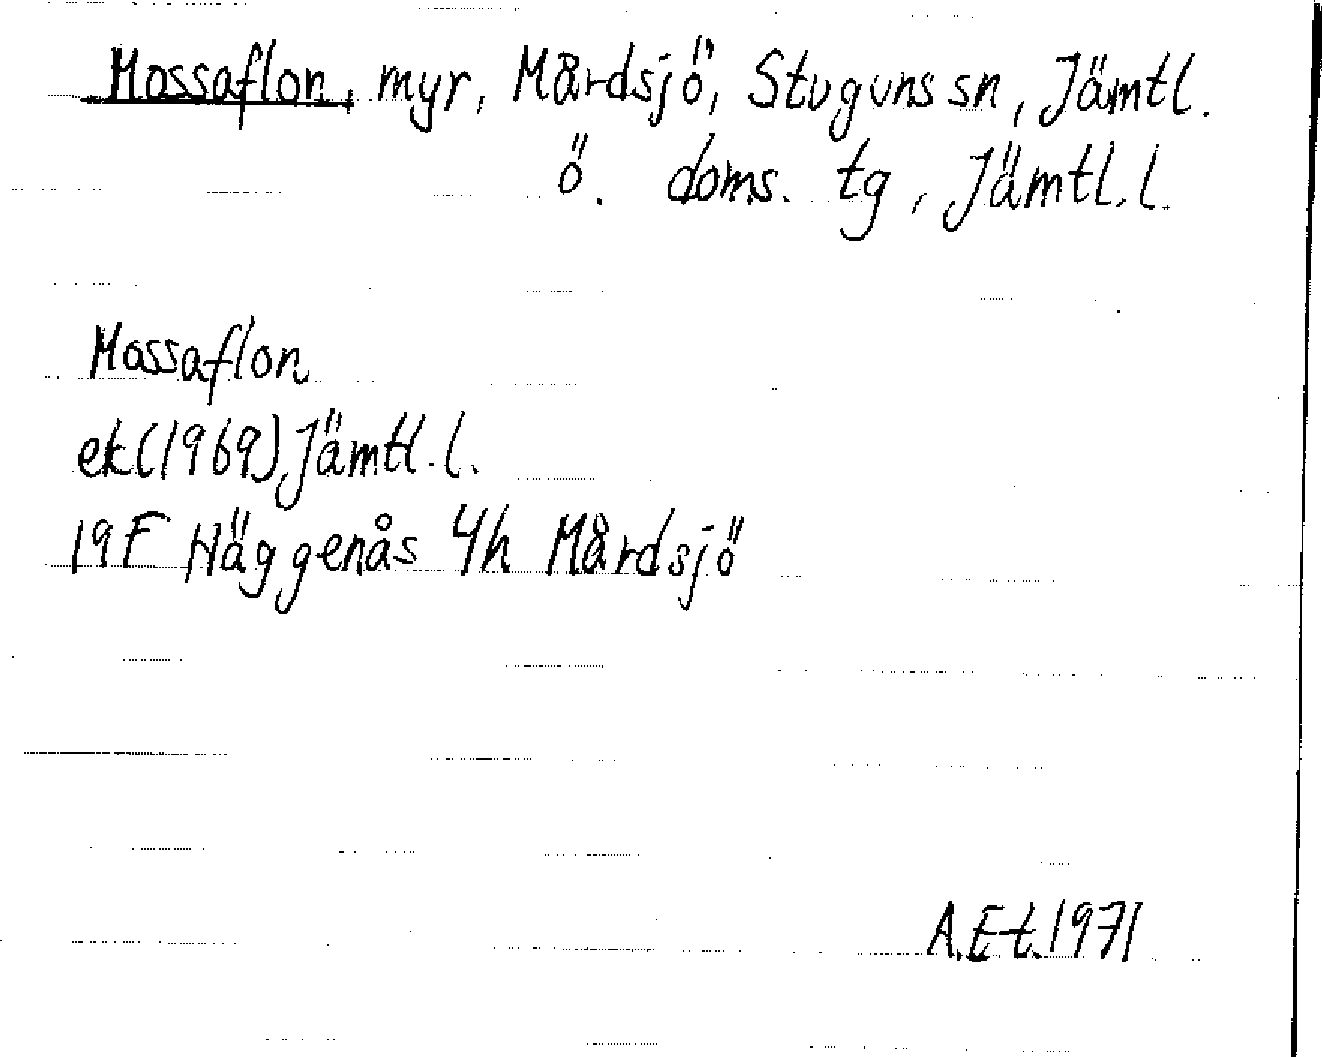 Mossaflon, myr, Mårdsjö, Stuguns sn, Jämtl.
ö. doms. tg, Jämtl. l.
Mossaflon
ek (1969), Jämtl. l.
19F Häggenås 4h Mårdsjö
A.E-t. 1971